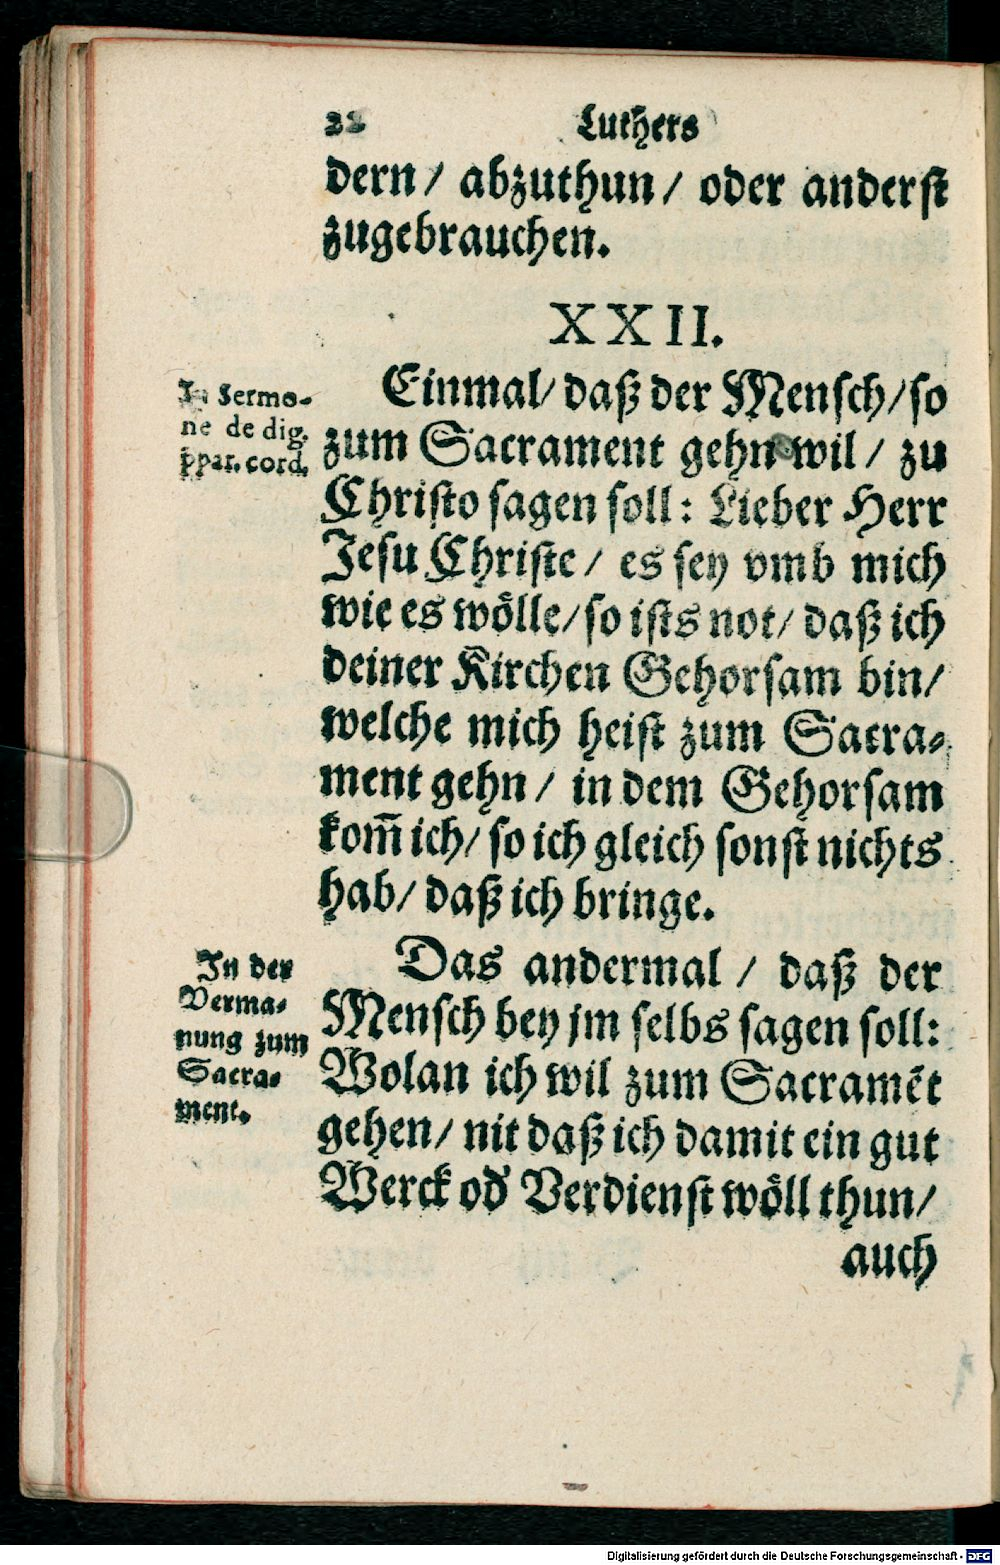 22 Luthers
dern/ abzuthun/ oder anderst
zugebrauchen.
XXII.
Einmal/ daß der Mensch/ so
zum Sacrament gehn wil/ zu
Christo sagen soll: Lieber Herr
Jesu Christe/ es sey vmb mich
wie es wölle/ so ists not/ daß ich
deiner Kirchen Gehorsam bin/
welche mich heist zum Sacra-
ment gehn/ in dem Gehorsam
kom̃ ich/ so ich gleich sonst nichts
hab/ daß ich bringe.
In Sermo-
ne de dig.
ppar. cord.
Das andermal/ daß der
Mensch bey jm selbs sagen soll:
Wolan ich wil zum Sacramẽt
gehen/ nit daß ich damit ein gut
Werck od' Verdienst wöll thun/
In der
Verma-
nung zum
Sacra-
ment.
auch
Digitalisierung gefördert durch die Deutsche Forschungsgemeinschaft - DFG